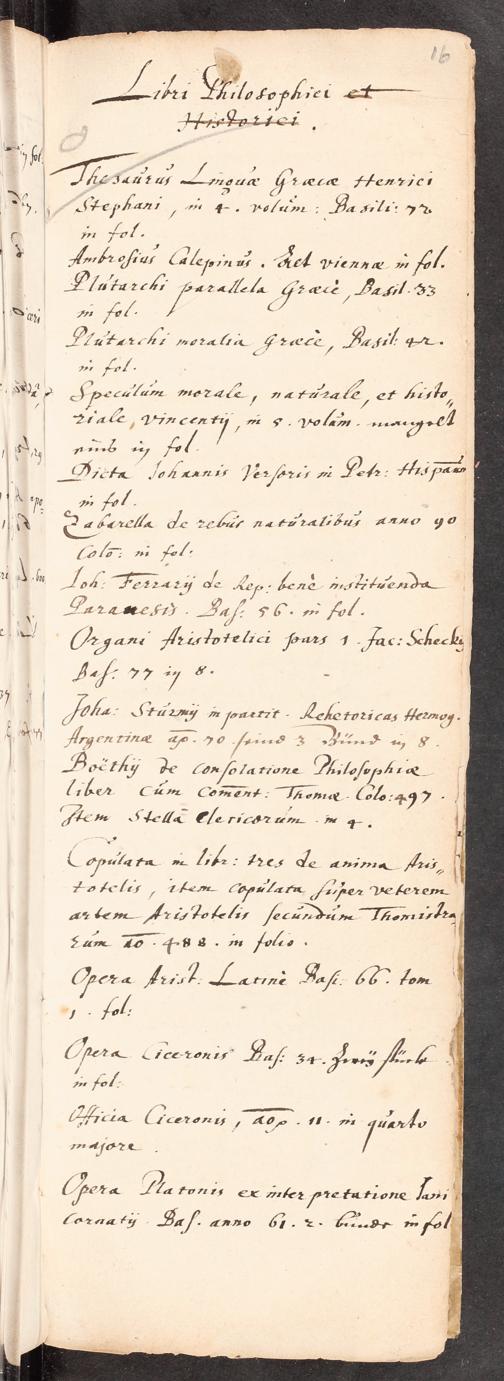 16
Libri Philosophici et
Historici.
Thesaurus Linguæ Græcæ Henrici
Stephani, in 4. volum: Basili: 72
in fol.
Ambrosius Calepinus. viennæ in fol.
Plutarchi parallela Græcè, Basil. 33
in fol.
Plutarchi moralia Græcè, Basil: 42.
in fol.
Speculum morale, naturale, et histo„
riale, vincentij, in 5. volum. mangelt
eins in fol.
Dicta Iohannis Versoris in Petr: Hispanum
in fol.
Zabarella de rebus naturalibus anno 90
Colo: in fol:
Ioh: Ferrarij de Rep: benè instituenda
Parænesis. Bas: 56. in fol.
Organi Aristotelici pars 1. Jac: Scheckij
Bas: 77 in 8.
Joha: Sturmij in partit. Rehetoricas Hermog.
Argentinæ ao. 70. seind 3 Bünd in 8.
Boëthij de consolatione Philosophiæ
liber cum coment: Thomæ Colo: 497.
Item Stella clericorum in 4.
Copulata in libr: tres de anima Aris„
totelis, item copulata super veterem
artem Aristotelis secundum Thomistra„
rum ao. 488. in folio.
Opera Arist: Latinè Bas: 66. tom
1. fol:
Opera Ciceronis Bas: 34. Zweij stuck
in fol:
Officia Ciceronis, ao. 11. in quarto
majore.
Opera Platonis ex interpretatione Iani
Cornarij. Bas. anno 61. 2. bunde in fol